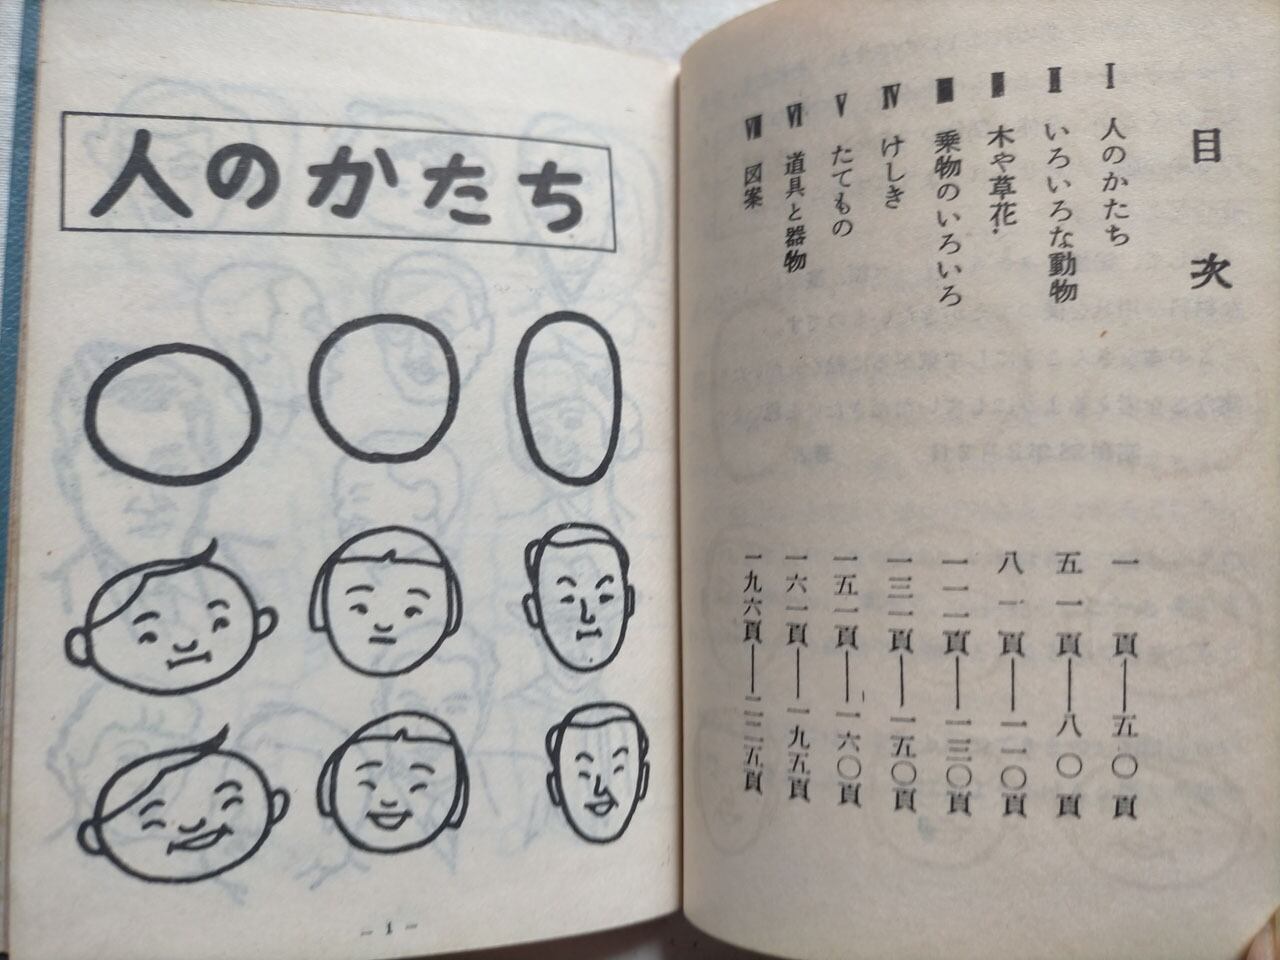 目次
Ⅰ 人のかたち 一頁――五〇頁
Ⅱ いろいろな動物 五一頁――八〇頁
Ⅲ 木や草花 八一頁――一一〇頁
乗物のいろいろ 一一一頁――一三〇頁
Ⅳ けしき 一三一頁――一五〇頁
Ⅴ たてもの 一五一頁――一六〇頁
Ⅵ 道具と器物 一六一頁――一九五頁
図案 一九六頁――二二五頁
人のかたち
- 1 -